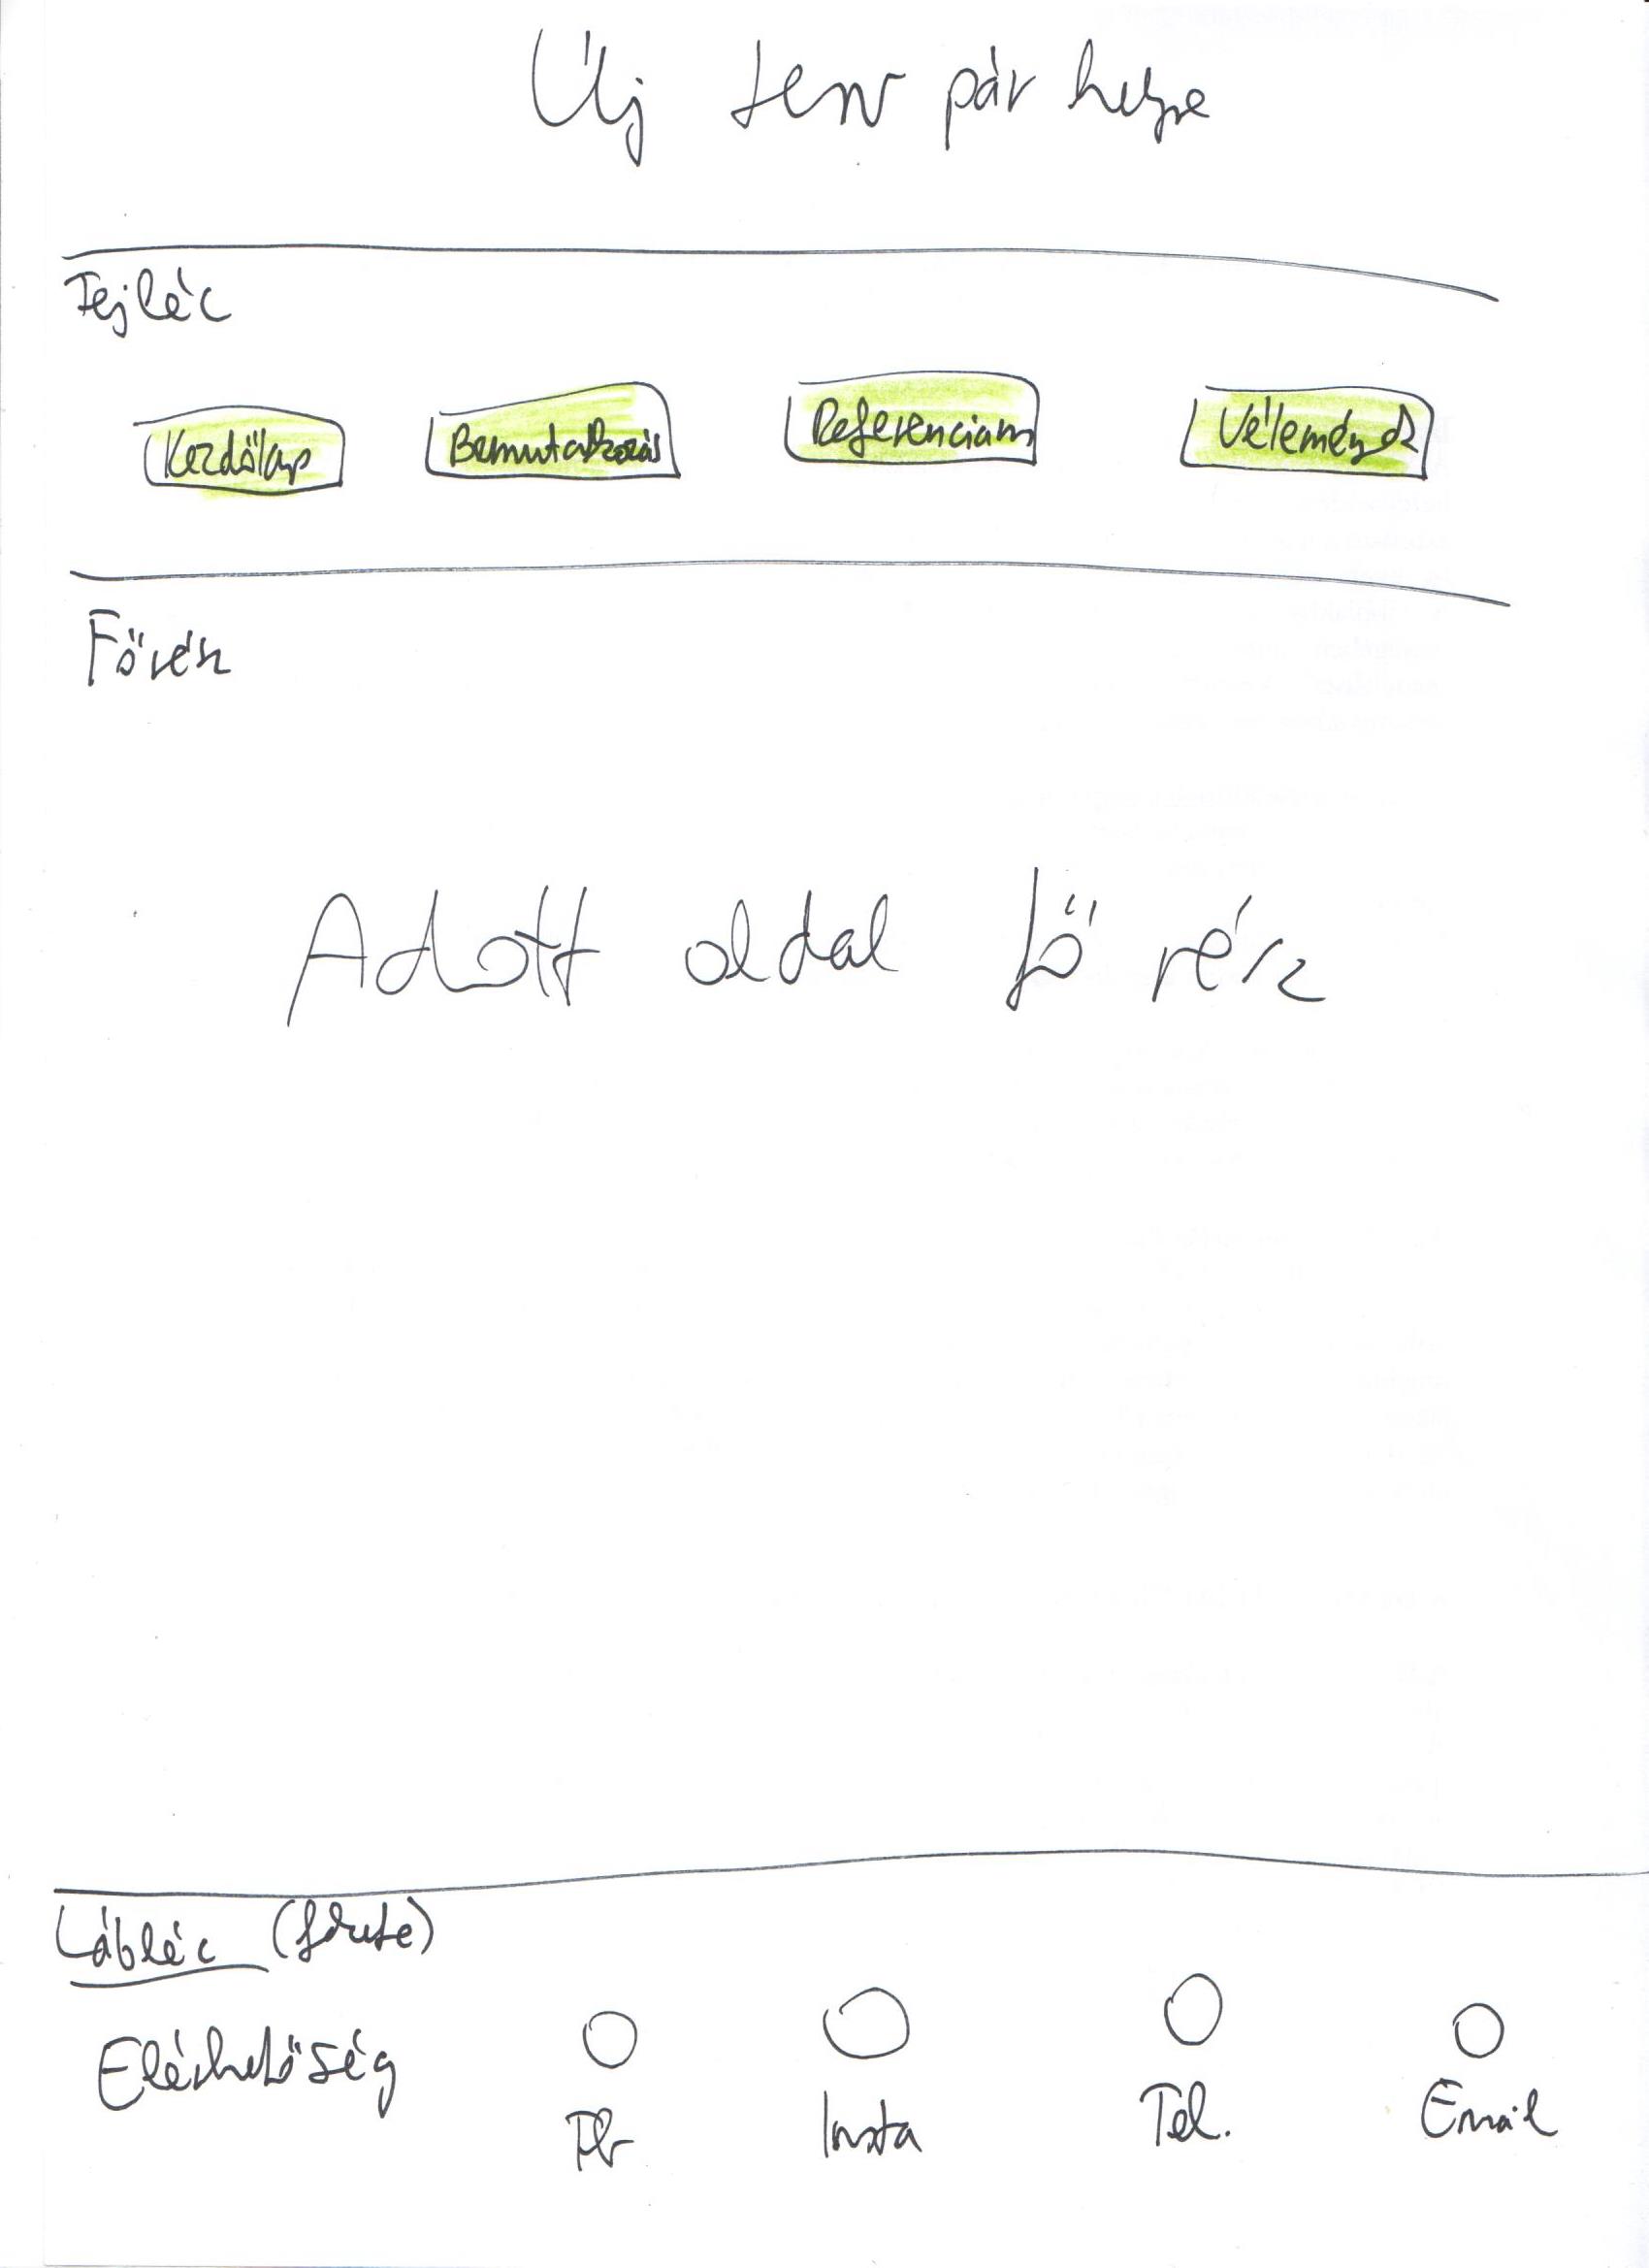 Új terv pár helyre
Fejléc
Kezdőlap Bemutatkozás Referenciam Vélemények
Főrész
Adott oldal fő rész
Lábléc
Elérhetőség Fb Insta Tel. Email